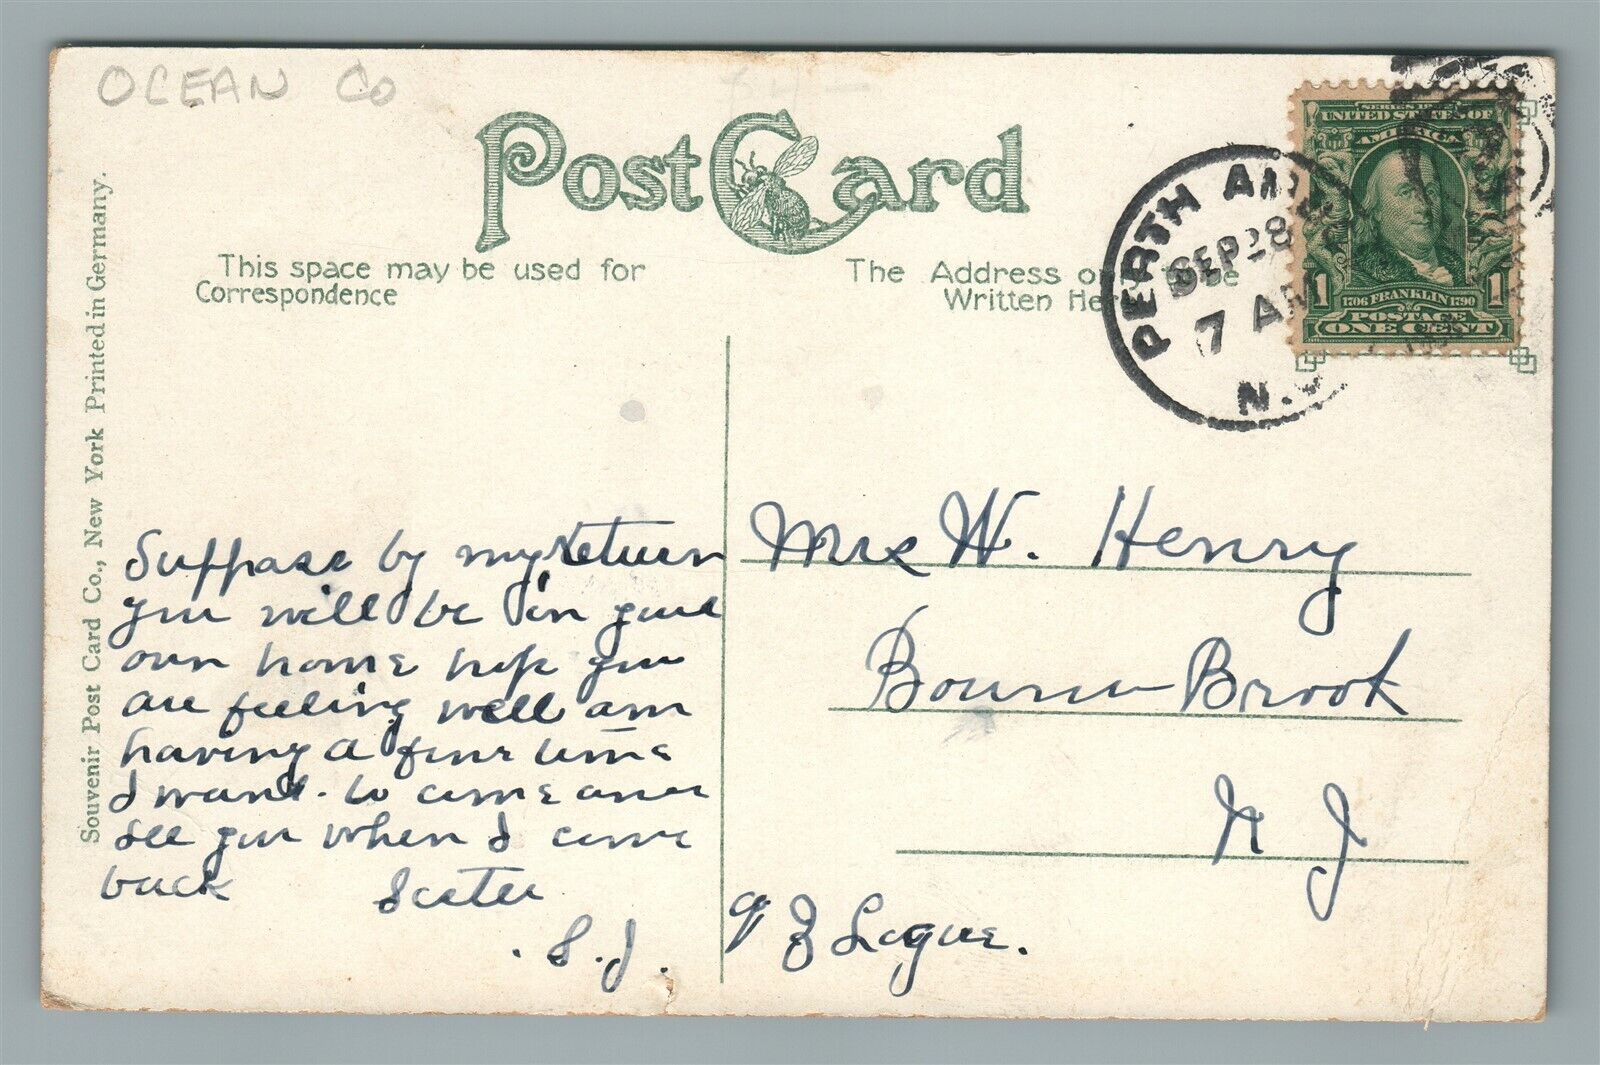 OCEAN Co
Post Card
This space may be used for
Correspondence
The Address on to be
Written Her
PERTH AM
SEP 28
7 AM
N.J.
SERIES 1902
UNITED STATES OF
AMERICA
1 1706 FRANKLIN 1790 1
POSTAGE
ONE CENT
Souvenir Post Card Co., New York Printed in Germany.
Suppose by my return
you will be in your
own home hope you
are feeling well am
having a fine time
I want to come and
see you when I come
back Sister
S. J.
Mrs W. Henry
Boun Brook
N J
Logue.